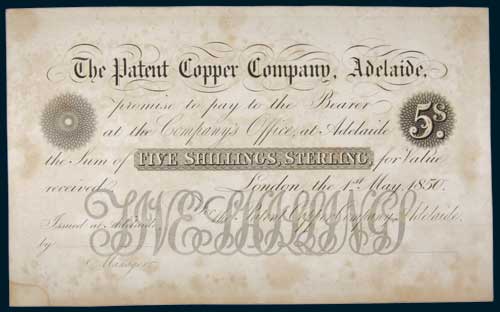 The Patent Copper Company, Adelaide.
promise to pay to the Bearer
at the Company's Office, at Adelaide
5s.
the Sum of FIVE SHILLINGS, STERLING, for Value
received
London, the 1st May, 1850.
FIVE SHILLINGS
The Patent Copper Company, Adelaide.
Issued at Adelaide
by
Manager